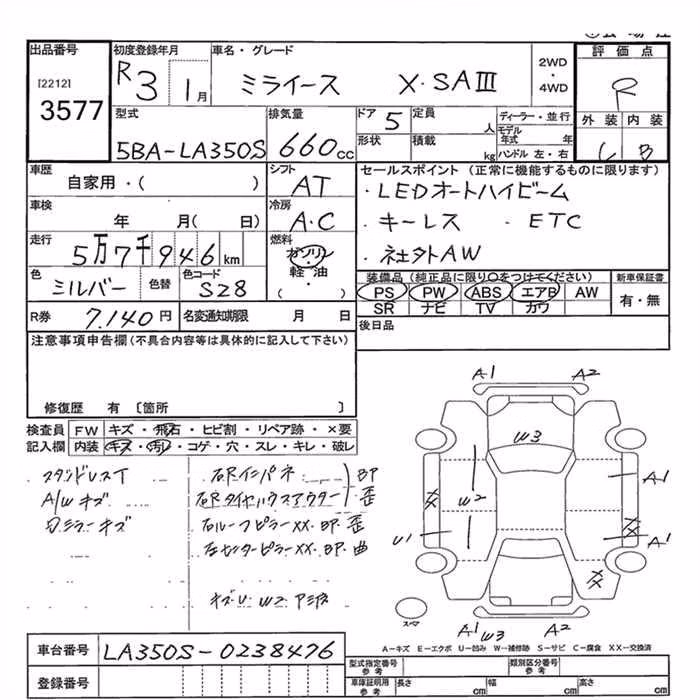 出品番号
[2212]
3577
初度登録年月
R3 1月
車名・グレード
ミライース X・SAⅢ
2WD
・
4WD
評価点
R
外装 内装
C B
型式
5BA-LA350S
排気量
660cc
ドア 5
形状
定員 人
積載 kg
ディーラー・並行
モデル年式 年
ハンドル 左・右
車歴
自家用・( )
シフト
AT
セールスポイント(正常に機能するものに限ります)
・LEDオートハイビーム
・キーレス ・ETC
・社外AW
車検
年 月( 日)
冷房
A・C
走行
5万7千946km
燃料
ガソリン
・
軽油
( )
色
シルバー
色替
色コード
S28
装備品(純正品に限り○をつけてください)
PS PW ABS エアB AW
SR ナビ TV カワ
新車保証書
有・無
R券
7,140円
名変通知期限 月 日
後日品
注意事項申告欄(不具合内容等は具体的に記入して下さい)
修復歴 有 〔箇所 〕
検査員
記入欄
FW キズ・飛石・ヒビ割・リペア跡・×要
内装 キズ・汚レ・コゲ・穴・スレ・キレ・破レ
スタッドレスT
A/Wキズ
ミラーキズ
右Rインパネ BP
右Rタイヤハウスアウター 歪
右ルーフピラーXX・BP・歪
右センターピラーXX・BP・曲
キズU W2
A1 A2
W3
W2
A1
U1
A1
A1 W3 A2
スペア
A-キズ E-エクボ U-凹み W-補修跡 S-サビ C-腐食 XX-交換済
車台番号
LA350S-0238476
登録番号
型式指定番号
参考
類別区分番号
参考
車庫証明用
参考
長さ cm
幅 cm
高さ cm